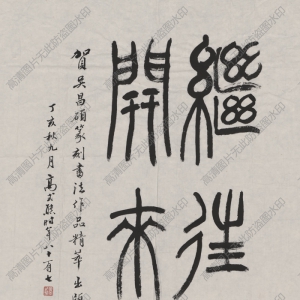 繼往
開來
賀吳昌碩篆刻書法作品精華出版
丁亥秋九月高式熊時年八十有七